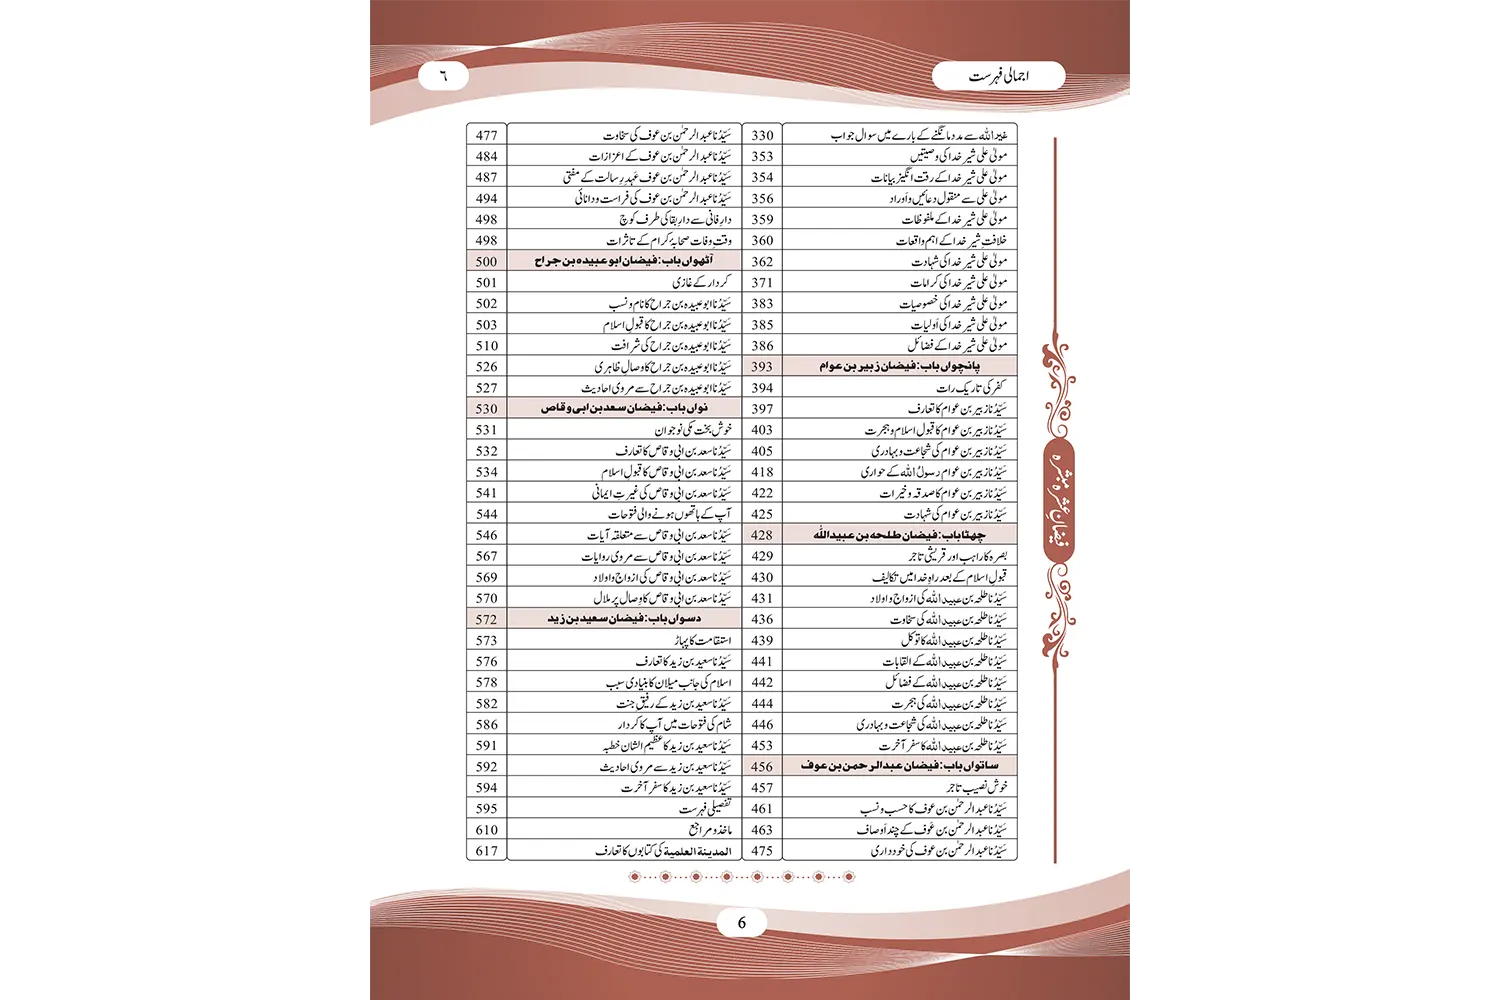 اجمالی فہرست
٦
غیر اللہ سے مدد مانگنے کے بارے میں سوال جواب 330
مولیٰ علی شیر خدا کی وصیتیں 353
مولیٰ علی شیر خدا کے رقت انگیز بیانات 354
مولیٰ علی سے منقول دعائیں و اَوراد 356
مولیٰ علی شیر خدا کے ملفوظات 359
خلافتِ شیر خدا کے اہم واقعات 360
مولیٰ علی شیر خدا کی شہادت 362
مولیٰ علی شیر خدا کی کرامات 371
مولیٰ علی شیر خدا کی خصوصیات 383
مولیٰ علی شیر خدا کی اَولیات 385
مولیٰ علی شیر خدا کے فضائل 386
پانچواں باب: فیضان زبیر بن عوام 393
کفر کی تاریک رات 394
سَیِّدُنا زبیر بن عوام کا تعارف 397
سَیِّدُنا زبیر بن عوام کا قبول اسلام و ہجرت 403
سَیِّدُنا زبیر بن عوام کی شجاعت و بہادری 405
سَیِّدُنا زبیر بن عوام رسولُ اللہ کے حواری 418
سَیِّدُنا زبیر بن عوام کا صدقہ و خیرات 422
سَیِّدُنا زبیر بن عوام کی شہادت 425
چھٹا باب: فیضان طلحہ بن عبید اللہ 428
بصرہ کا راہب اور قریشی تاجر 429
قبول اسلام کے بعد راہِ خدا میں تکالیف 430
سَیِّدُنا طلحہ بن عبید اللہ کی ازواج و اولاد 431
سَیِّدُنا طلحہ بن عبید اللہ کی سخاوت 436
سَیِّدُنا طلحہ بن عبید اللہ کا توکل 439
سَیِّدُنا طلحہ بن عبید اللہ کے القابات 441
سَیِّدُنا طلحہ بن عبید اللہ کے فضائل 442
سَیِّدُنا طلحہ بن عبید اللہ کی ہجرت 444
سَیِّدُنا طلحہ بن عبید اللہ کی شجاعت و بہادری 446
سَیِّدُنا طلحہ بن عبید اللہ کا سفر آخرت 453
ساتواں باب: فیضان عبد الرحمن بن عوف 456
خوش نصیب تاجر 457
سَیِّدُنا عبد الرحمٰن بن عوف کا حسب و نسب 461
سَیِّدُنا عبد الرحمٰن بن عَوف کے چند اَوصاف 463
سَیِّدُنا عبد الرحمٰن بن عوف کی خودداری 475
سَیِّدُنا عبد الرحمٰن بن عوف کی سخاوت 477
سَیِّدُنا عبد الرحمٰن بن عوف کے اعزازات 484
سَیِّدُنا عبد الرحمٰن بن عوف عہدِ رسالت کے مفتی 487
سَیِّدُنا عبد الرحمٰن بن عوف کی فراست و دانائی 494
دارِ فانی سے دارِ بقا کی طرف کوچ 498
وقتِ وفات صحابۂ کرام کے تاثرات 498
آٹھواں باب: فیضان ابو عبیدہ بن جراح 500
کردار کے غازی 501
سَیِّدُنا ابو عبیدہ بن جراح کا نام و نسب 502
سَیِّدُنا ابو عبیدہ بن جراح کا قبولِ اسلام 503
سَیِّدُنا ابو عبیدہ بن جراح کی شرافت 510
سَیِّدُنا ابو عبیدہ بن جراح کا وصالِ ظاہری 526
سَیِّدُنا ابو عبیدہ بن جراح سے مروی احادیث 527
نواں باب: فیضان سعد بن ابی وقاص 530
خوش بخت مکی نوجوان 531
سَیِّدُنا سعد بن ابی وقاص کا تعارف 532
سَیِّدُنا سعد بن ابی وقاص کا قبولِ اسلام 534
سَیِّدُنا سعد بن ابی وقاص کی غیرتِ ایمانی 541
آپ کے ہاتھوں ہونے والی فتوحات 544
سَیِّدُنا سعد بن ابی وقاص سے متعلقہ آیات 546
سَیِّدُنا سعد بن ابی وقاص سے مروی روایات 567
سَیِّدُنا سعد بن ابی وقاص کی ازواج و اولاد 569
سَیِّدُنا سعد بن ابی وقاص کا وِصال پر ملال 570
دسواں باب: فیضان سعید بن زید 572
استقامت کا پہاڑ 573
سَیِّدُنا سعید بن زید کا تعارف 576
اسلام کی جانب میلان کا بنیادی سبب 578
سَیِّدُنا سعید بن زید کے رفیقِ جنت 582
شام کی فتوحات میں آپ کا کردار 586
سَیِّدُنا سعید بن زید کا عظیم الشان خطبہ 591
سَیِّدُنا سعید بن زید سے مروی احادیث 592
سَیِّدُنا سعید بن زید کا سفر آخرت 594
تفصیلی فہرست 595
ماخذ و مراجع 610
المدینة العلمیة کی کتابوں کا تعارف 617
فیضانِ عشرہ مبشرہ
6